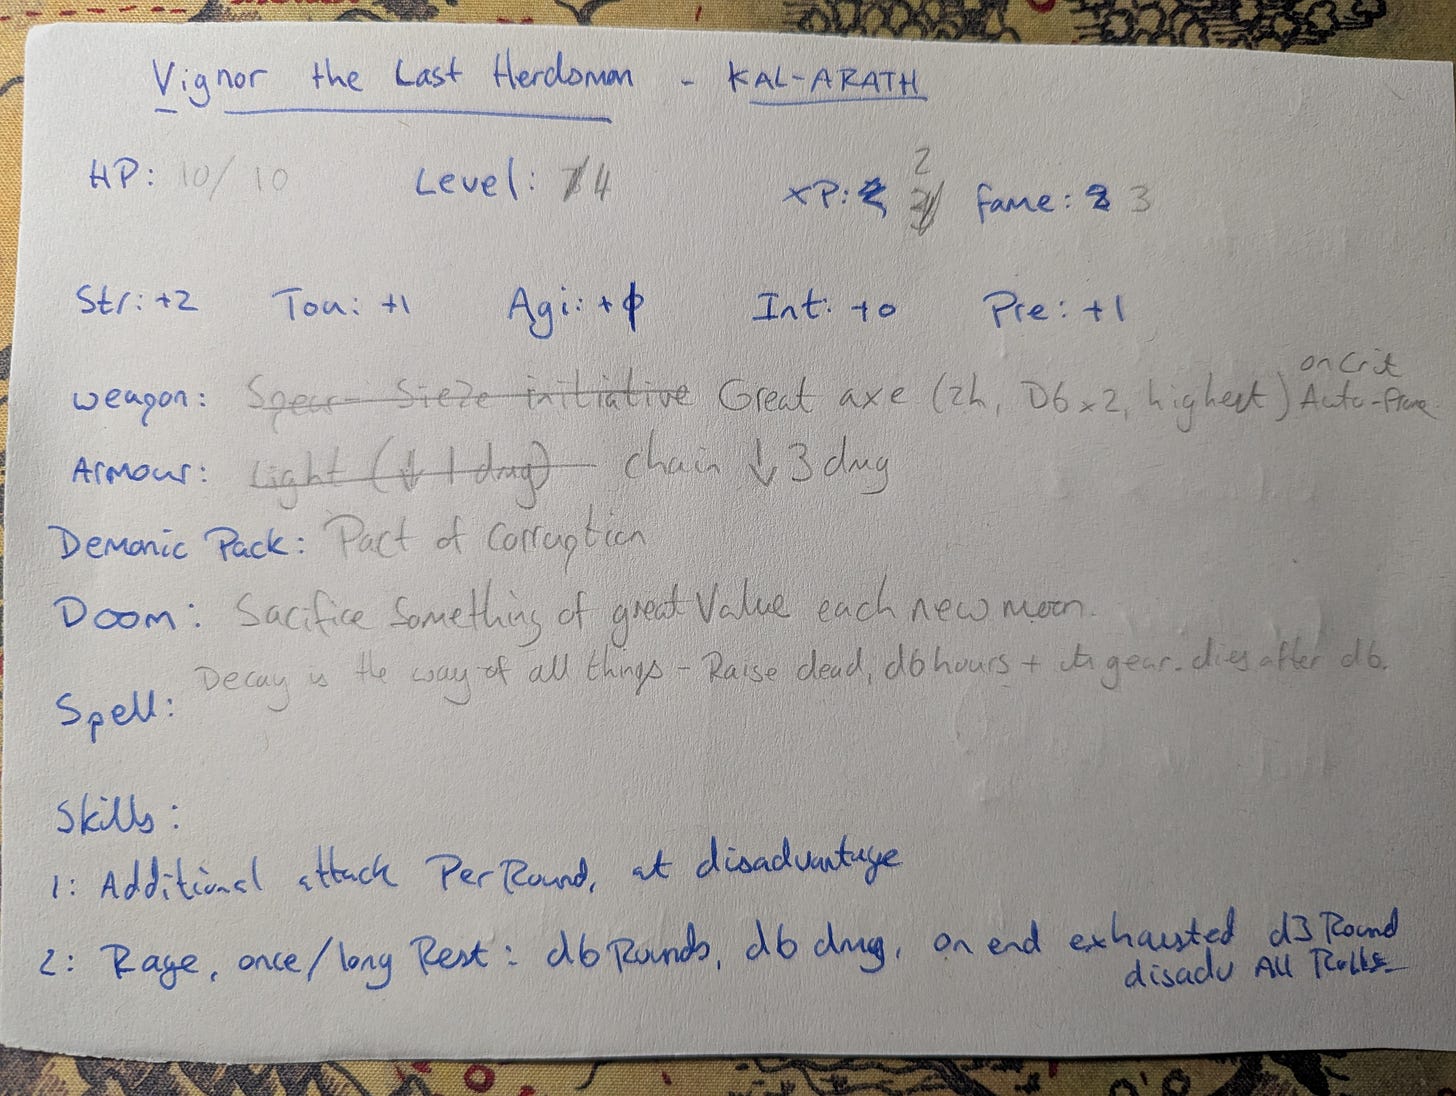 Vignor the Last Herdsman - KAL-ARATH
HP: 10/10 Level: 4 XP: 2 fame: 3
Str: +2 Tou: +1 Agi: +0 Int: +0 Pre: +1
Weapon: Spear - Sieze initiative Great axe (2h, D6x2, highest) on Crit
Armour: Light (↓ 1 dmg) chain ↓ 3 dmg
Demonic Pack: Pact of Corruption
Doom: Sacifice Something of great Value each new moon.
Spell: Decay is the way of all things - Raise dead, d6 hours + gear. dies after d6.
Skills:
1: Additional attack Per Round, at disadvantage
2: Rage, once/long Rest: d6 Rounds, d6 dmg, on end exhausted d3 Round
disadv All Rolls